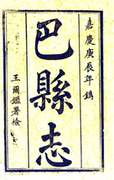 嘉慶庚辰年鐫
巴縣志
王爾鑑署檢